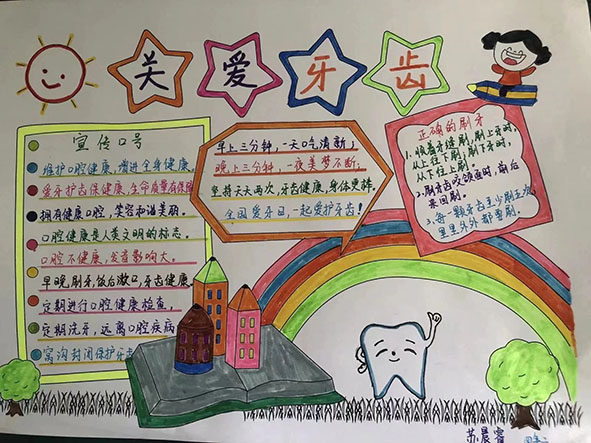 关爱牙齿
宣传口号
维护口腔健康,增进全身健康。
爱牙护齿保健康,生命质量有保障
拥有健康口腔,笑容和谐美丽。
口腔健康是人类文明的标志。
口腔不健康,发音影响大。
早晚刷牙,饭后漱口,牙齿健康。
定期进行口腔健康检查。
定期洗牙,远离口腔疾病
窝沟封闭保护牙齿
早上三分钟,一天口气清新;
晚上三分钟,一夜美梦不断;
坚持天天两次,牙齿健康,身体更棒。
全国爱牙日,一起爱护牙齿!
正确的刷牙
1.顺着牙缝刷,刷上牙时,
从上往下刷;刷下牙时,
从下往上刷。
2.刷牙齿咬颌面时,前后
来回刷。
3.每一颗牙齿至少刷五次
里里外外都要刷。
苏晨睿